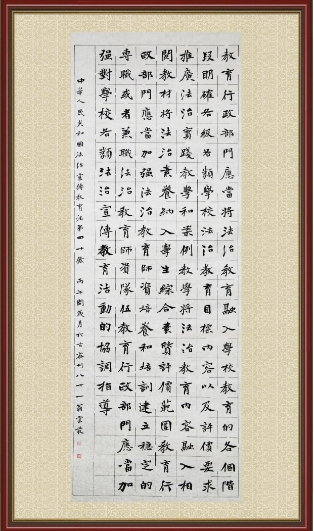 教育行政部門應當将法治教育融入學校教育的各個階
段明確各級各類學校法治教育目標内容以及評價要求
推廣法治實踐教學和案例教學将法治教育内容融入相
関教材将法治素養納入學生綜合素質評價範圍教育行
政部門應當加强法治教育師資培養和培訓建立穩定的
專職或者兼職法治教育師資隊伍教育行政部門應當加
强對學校各類法治宣傳教育活動的協調指導
中華人民共和國法治宣傳教育法第四十條 丙午